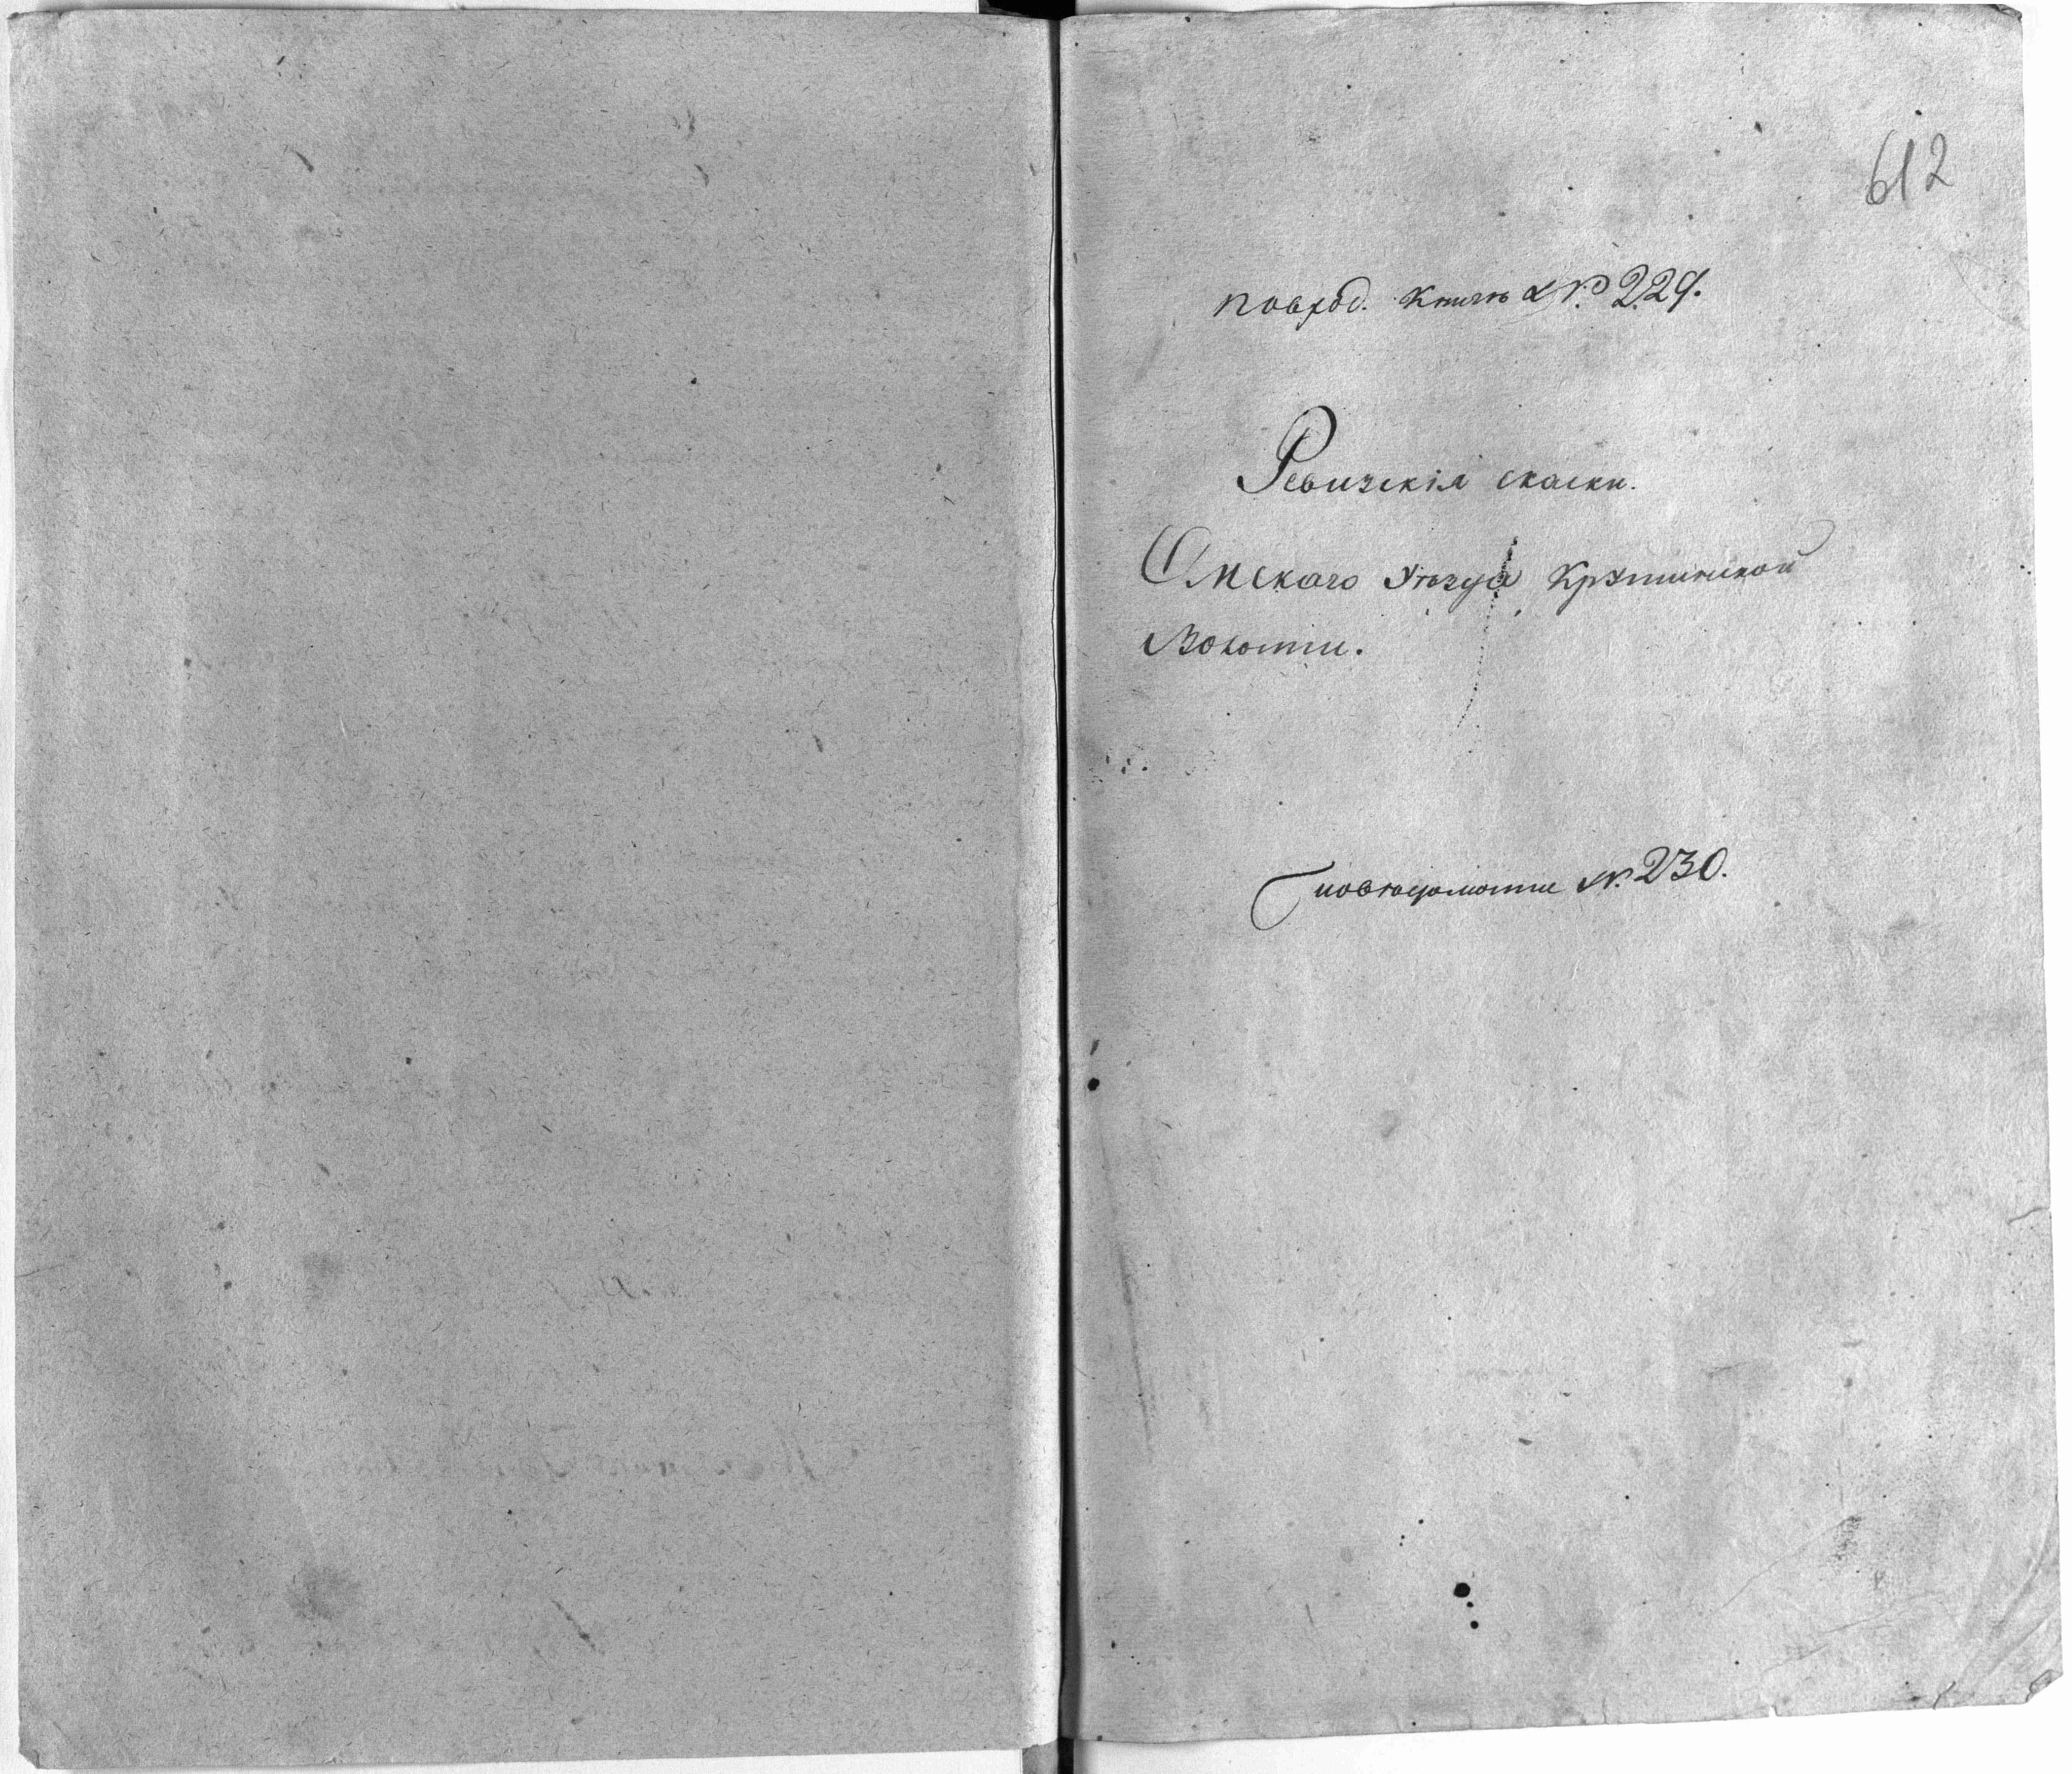 612
повход. книгѣ № 229.
Ревизскія скаски.
Омскаго уѣзда Крутинской
Волости.
повѣдомости №. 230.